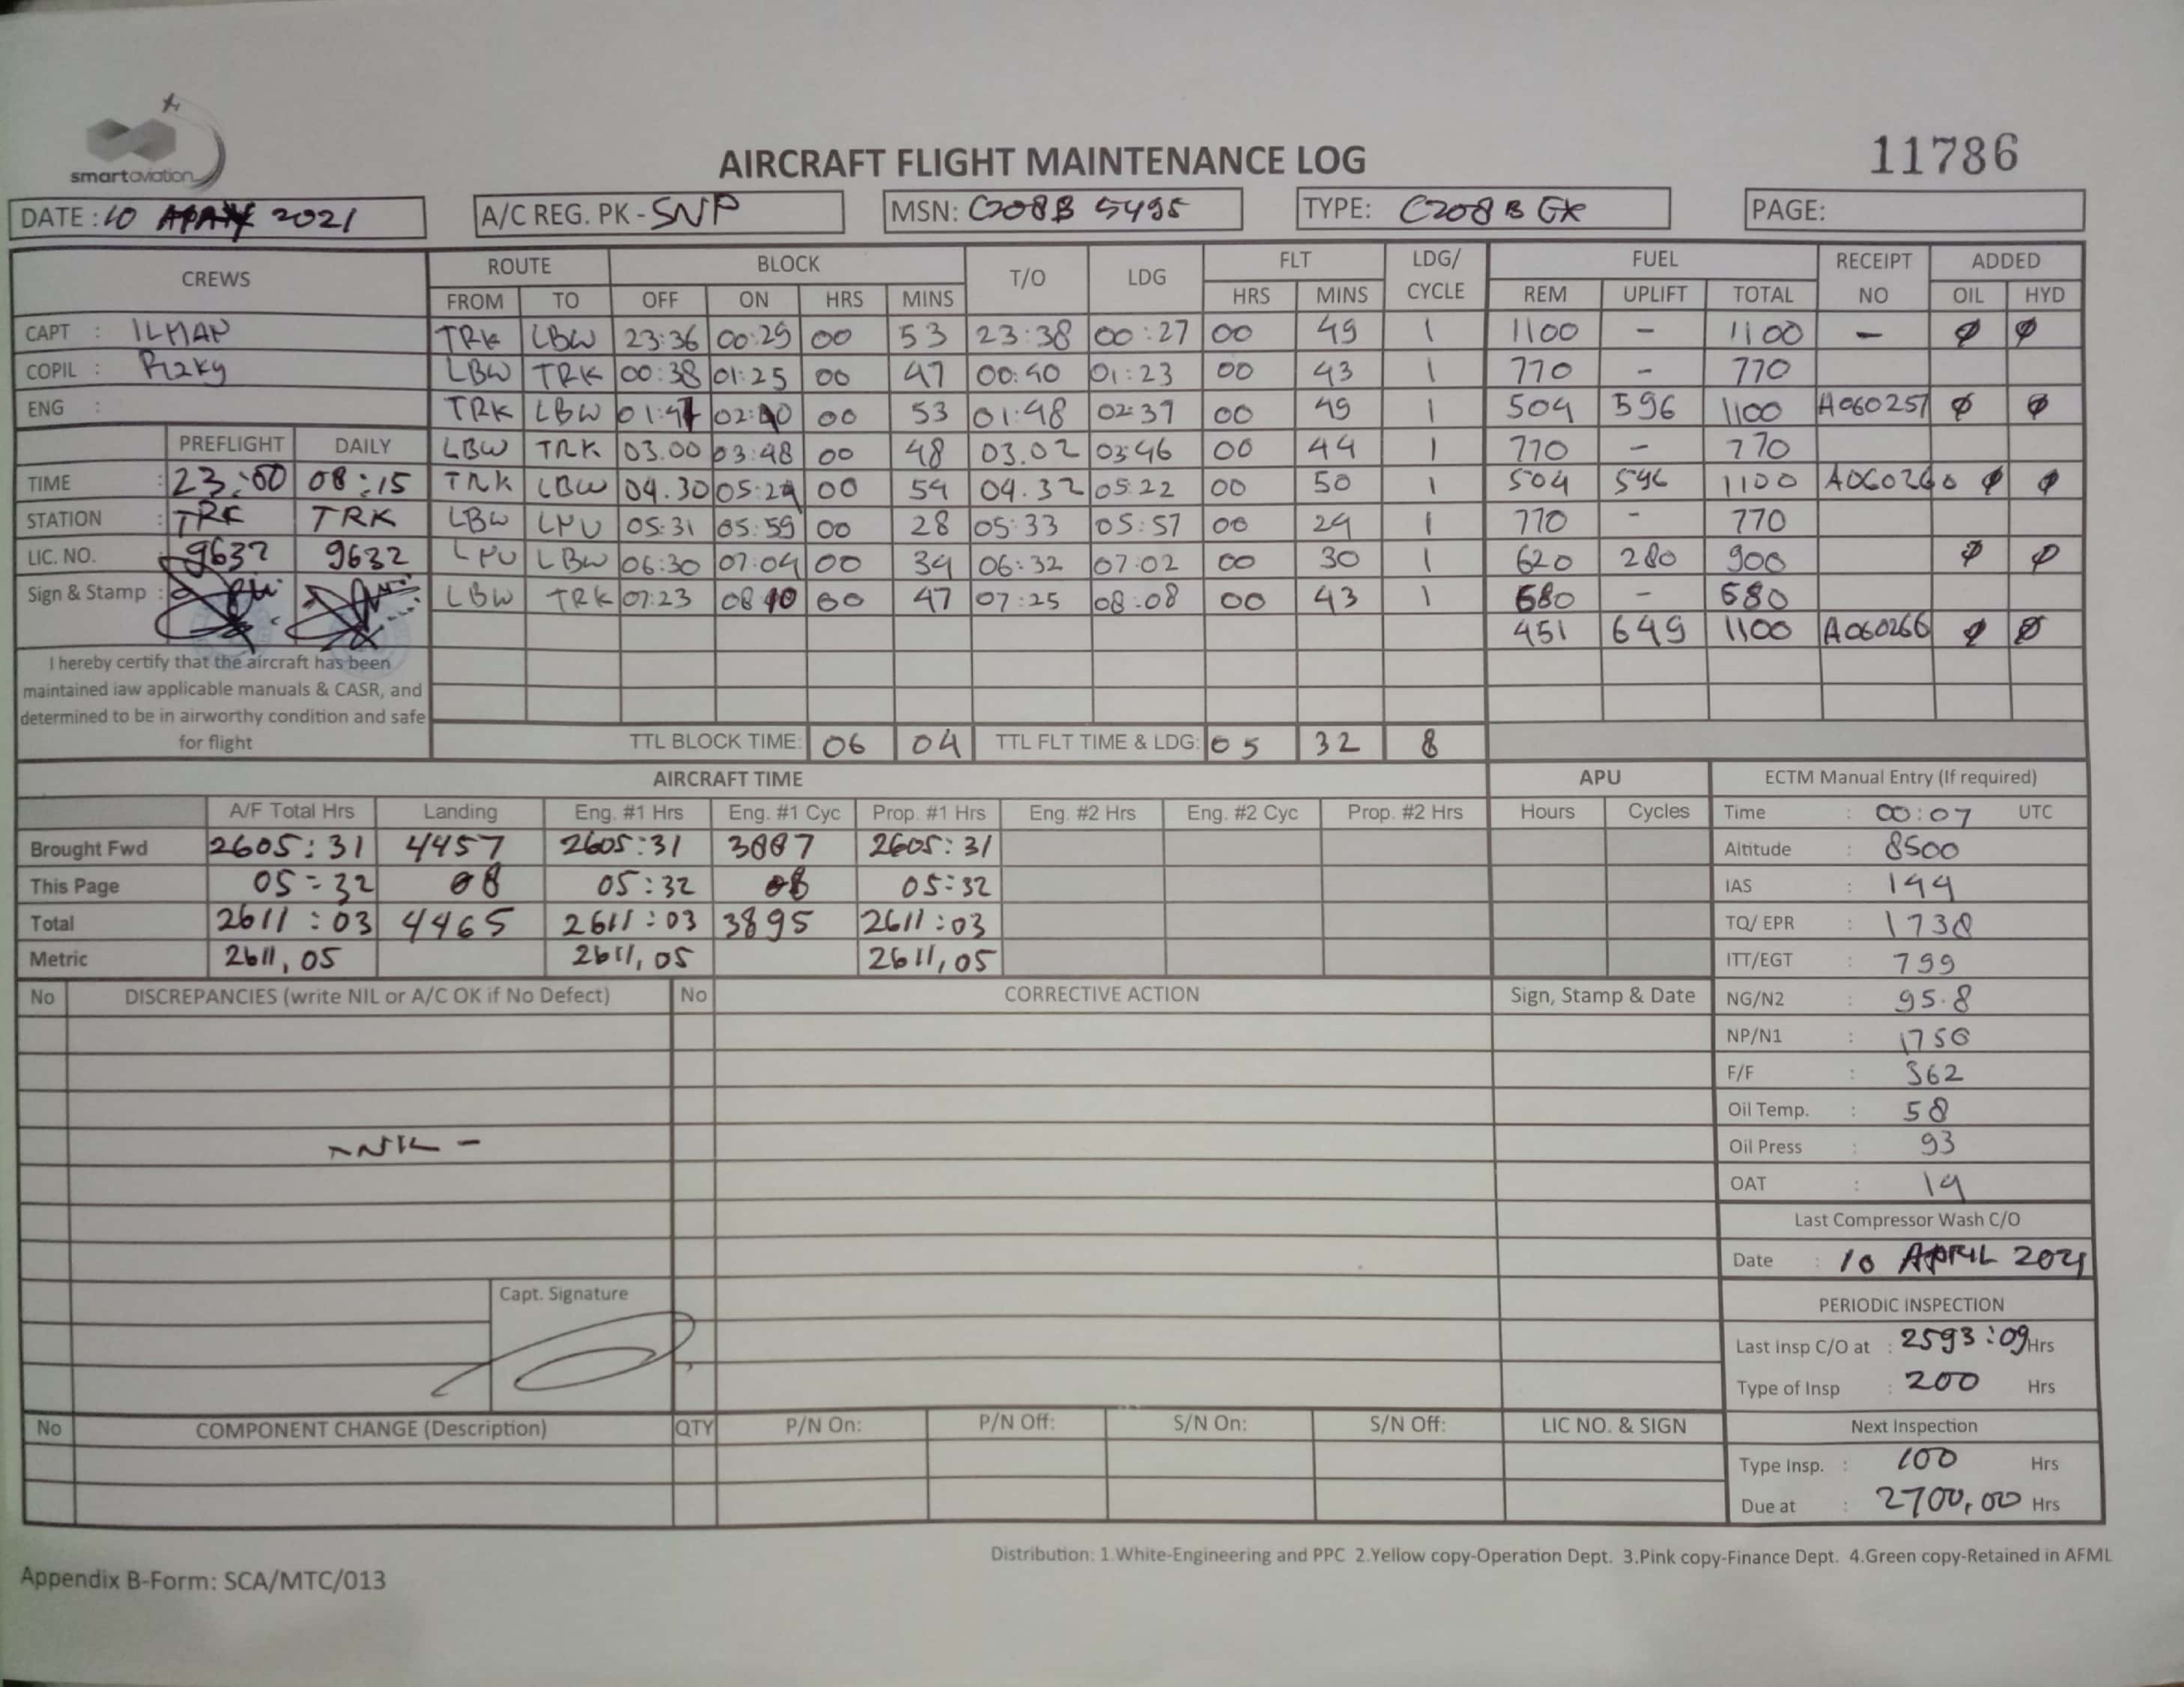 smartaviation
AIRCRAFT FLIGHT MAINTENANCE LOG
11786
DATE : 10 2021 A/C REG. PK - SNP MSN: C208B 5495 TYPE: C208B EX PAGE:
CREWS ROUTE BLOCK T/O LDG FLT LDG/ CYCLE FUEL RECEIPT NO ADDED
FROM TO OFF ON HRS MINS HRS MINS REM UPLIFT TOTAL OIL HYD
CAPT : ILMAN TRK LBW 23:36 00:29 00 53 23:38 00:27 00 49 1 1100 – 1100 – Ø Ø
COPIL : Rizky LBW TRK 00:38 01:25 00 47 00:40 01:23 00 43 1 770 – 770
ENG : TRK LBW 01:47 02:40 00 53 01:48 02:37 00 49 1 504 596 1100 A060257 Ø Ø
PREFLIGHT DAILY LBW TRK 03.00 03:48 00 48 03.02 03:46 00 44 1 770 – 770
TIME : 23:00 08:15 TRK LBW 04.30 05:24 00 54 04.32 05:22 00 50 1 504 596 1100 A060260 Ø Ø
STATION : TRK TRK LBW LPU 05:31 05:59 00 28 05:33 05:57 00 24 1 770 - 770
LIC. NO. 9632 9632 LPU LBW 06:30 07:04 00 34 06:32 07:02 00 30 1 620 280 900 Ø Ø
Sign & Stamp : LBW TRK 07:23 08 10 00 47 07:25 08:08 00 43 1 680 - 680
451 649 1100 A060266 Ø Ø
I hereby certify that the aircraft has been
maintained iaw applicable manuals & CASR, and
determined to be in airworthy condition and safe
for flight
TTL BLOCK TIME: 06 04 TTL FLT TIME & LDG: 05 32 8
AIRCRAFT TIME APU ECTM Manual Entry (If required)
A/F Total Hrs Landing Eng. #1 Hrs Eng. #1 Cyc Prop. #1 Hrs Eng. #2 Hrs Eng. #2 Cyc Prop. #2 Hrs Hours Cycles Time : 00:07 UTC
Brought Fwd 2605:31 4457 2605:31 3887 2605:31 Altitude : 8500
This Page 05:32 08 05:32 08 05:32 IAS : 144
Total 2611:03 4465 2611:03 3895 2611:03 TQ/ EPR : 1738
Metric 2611,05 2611,05 2611,05 ITT/EGT : 799
No DISCREPANCIES (write NIL or A/C OK if No Defect) No CORRECTIVE ACTION Sign, Stamp & Date NG/N2 : 95.8
NP/N1 : 1750
F/F : 362
Oil Temp. : 58
- NIL - Oil Press : 93
OAT : 14
Last Compressor Wash C/O
Date : 10 APRIL 2021
Capt. Signature
PERIODIC INSPECTION
Last Insp C/O at : 2593:09 Hrs
Type of Insp : 200 Hrs
No COMPONENT CHANGE (Description) QTY P/N On: P/N Off: S/N On: S/N Off: LIC NO. & SIGN Next Inspection
Type Insp. : 100 Hrs
Due at : 2700,00 Hrs
Distribution: 1.White-Engineering and PPC 2.Yellow copy-Operation Dept. 3.Pink copy-Finance Dept. 4.Green copy-Retained in AFML
Appendix B-Form: SCA/MTC/013